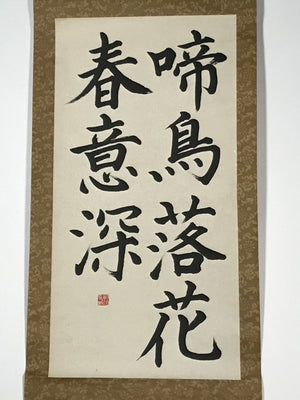 啼鳥落花
春意深